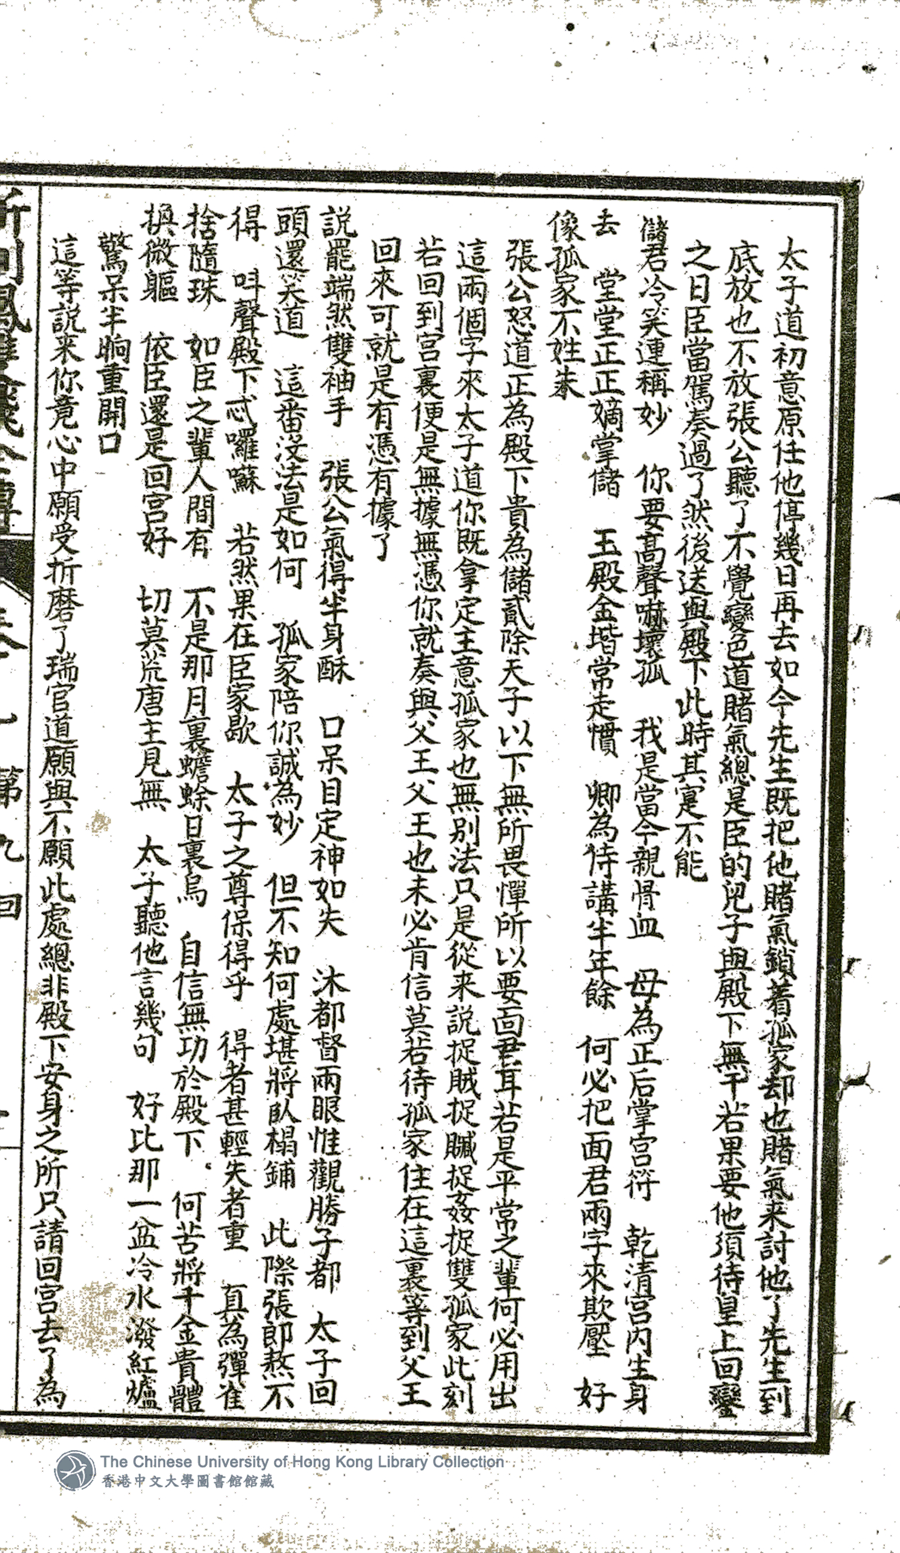 太子道初意原任他停幾日再去如今先生既把他賭氣鎖着孤家却也賭氣来討他了先生到
底放也不放張公聽了不覺變色道賭氣總是臣的兒子與殿下無干若果要他須待皇上回鑾
之日臣當駕奏過了然後送與殿下此時其寔不能
儲君冷笑連稱妙　你要高聲嚇壞孤　我是當今親骨血　母為正后掌宮符　乾清宮内生身
去　堂堂正正嫡掌儲　玉殿金堦常走慣　卿為侍講半年餘　何必把面君兩字來欺壓　好
像孤家不姓朱
張公怒道正為殿下貴為儲貳除天子以下無所畏憚所以要面君耳若是平常之輩何必用出
這兩個字來太子道你既拿定主意孤家也無别法只是從来説捉賊捉贓捉姦捉雙孤家此刻
若回到宮裏便是無據無憑你就奏與父王父王也未必肯信莫若待孤家住在這裏等到父王
回來可就是有憑有據了
説罷端然雙袖手　張公氣得半身酥　口呆目定神如失　沐都督兩眼惟觀勝子都　太子回
頭還笑道　這番沒法是如何　孤家陪你誠為妙　但不知何處堪將臥榻鋪　此際張郎熬不
得　呌聲殿下忒囉囌　若然果在臣家歇　太子之尊保得乎　得者甚輕失者重　真為彈雀
捨隨珠　如臣之輩人間有　不是那月裏蟾蜍日裏烏　自信無功於殿下　何苦將千金貴體
換微軀　依臣還是回宮好　切莫荒唐主見無　太子聽他言幾句　好比那一盆冷水潑紅爐
驚呆半晌重開口
這等説来你竟心中願受折磨了瑞官道願與不願此處總非殿下安身之所只請回宮去了為
第九回
The Chinese University of Hong Kong Library Collection
香港中文大學圖書館館藏